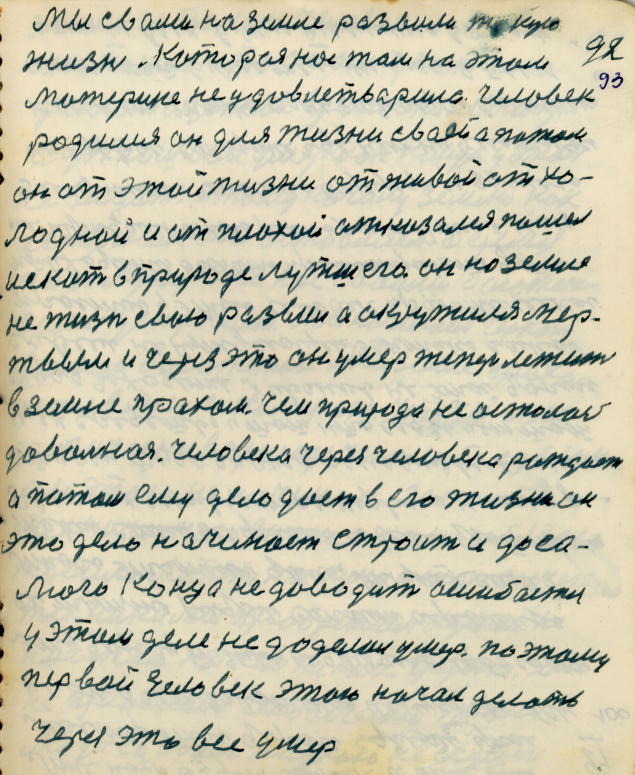 мы с вами на земле развили такую
жизнь. Которая нас там на этом
92
93
материке не удовлетварила. Человек
родился он для жизни сваей а потом
он от этой жизни от живой от хо-
лодной и от плохой отказался пошел
искат в природе лутшего он на земле
не жизн свою развил а окружился мер-
твым и через это он умер теперь лежит
в земле прахом. Чем природа не осталас
доволная. Человека через человека рождает
а потом ему дело дает в его жизни он
это дело начинает строит и до са-
мого конца не доводит ошибается
у этом деле не доделал умер. поэтому
первой Человек этого начал делать
через это все умер